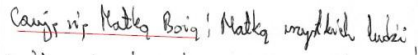 Czuję się Matką Boią i Matką wszystkich ludzi